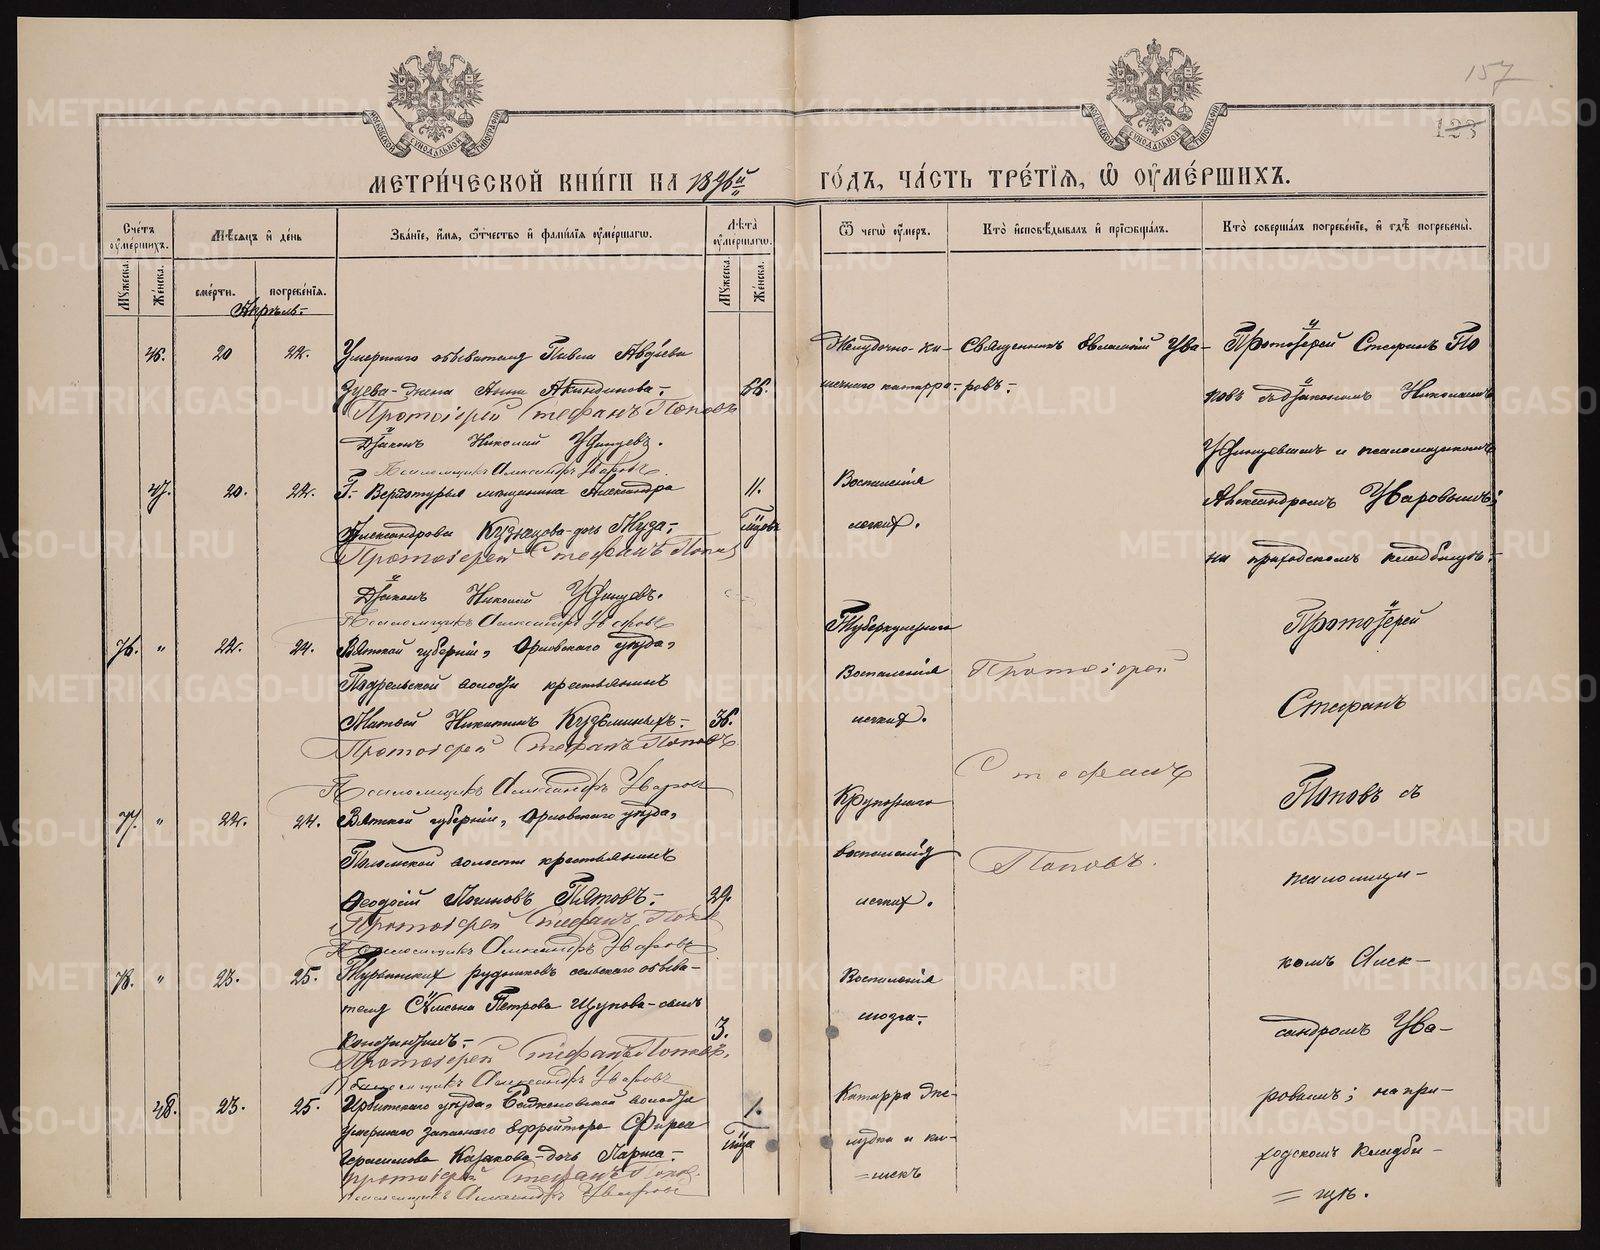 157
123
МЕТРИ́ЧЕСКОЙ КНИ́ГИ НА 1896й
ГО́ДЪ, ЧА́СТЬ ТРЕ́ТЇѦ, Ѽ ОУМЕ́РШИХЪ.
Сче́тъ оумершихъ.
Мѣсяцъ и день
Зва́нїе, и́мѧ, ѻ҆́тчество и҆ фами́лїѧ оумершагѡ.
Лѣта оумершагѡ.
Ѿ чегѡ̀ оумеръ.
Кто̀ исповѣдывалъ и прїѡбщалъ.
Кто̀ соверша́лъ погребе́нїе, и гдѣ̀ погребены̀.
Мужеска.
Женска.
смерти.
погребе́нїѧ.
Мужеска.
Женска.
Апрѣль.
46. 20 22. Умершаго обывателя Павла Авдіева
Зуева-жена Анна Акиндинова. 66.
Протоіерей Стефанъ Поповъ
Діаконъ Николай Уфинцевъ.
Псаломщикъ Александръ Уваровъ
Желудочно-ки-
шечнаго катарра.
Священникъ Евлампій Ува-
ровъ.
Протоіерей Стефанъ По
повъ съ діакономъ Николаемъ
Уфинцевымъ и псаломщикомъ
Александромъ Уваровымъ;
на приходскомъ кладбищѣ.
47. 20. 22. Г. Верхотурья мѣщанина Александра 11.
Александрова Кузнецова-дочь Муза.
Протоіерей Стефанъ Попов
Діаконъ Николай Уфинцевъ.
Псаломщикъ Александръ Уваровъ
Воспаленія
легких.
76. " 22. 24. Вятской губерніи, Орловскаго уѣзда,
волости крестьянинъ
Никитинъ Кузьминыхъ. 36.
Протоіерей Стефанъ Поповъ
Псаломщикъ Александръ Уваров
Туберкулезнаго
Воспаленія
легких.
Протоіерей
Стефанъ
Поповъ.
Протоіерей
Стефанъ
Поповъ съ
псаломщи-
комъ Алек-
сандромъ Ува-
ровымъ; на при-
ходскомъ кладби-
=щѣ.
77. " 22. 24. Вятской губерніи, Орловскаго уѣзда,
волости крестьянинъ
Ѳеодосій Логиновъ Пятовъ. 29.
Протоіерей Стефанъ Попов
Псаломщикъ Александръ Уваровъ
Крупознаго
воспаленія
легких.
78. " 23. 25. Турьинскихъ рудниковъ сельскаго обыва-
теля Петрова Щупова-сынъ
Константинъ. 3.
Протоіерей Стефанъ Поповъ.
Псаломщикъ Александръ Уваровъ
Воспаленія
мозга.
48. 23. 25. Ирбитскаго уѣзда, волости 1.
умершаго запаснаго ефрейтора Фирса года
Герасимова Казакова-дочь Лариса.
Протоіерей Стефанъ Попов.
Псаломщикъ Александръ Уваровъ
Катарра же-
лудка и ки-
=шекъ